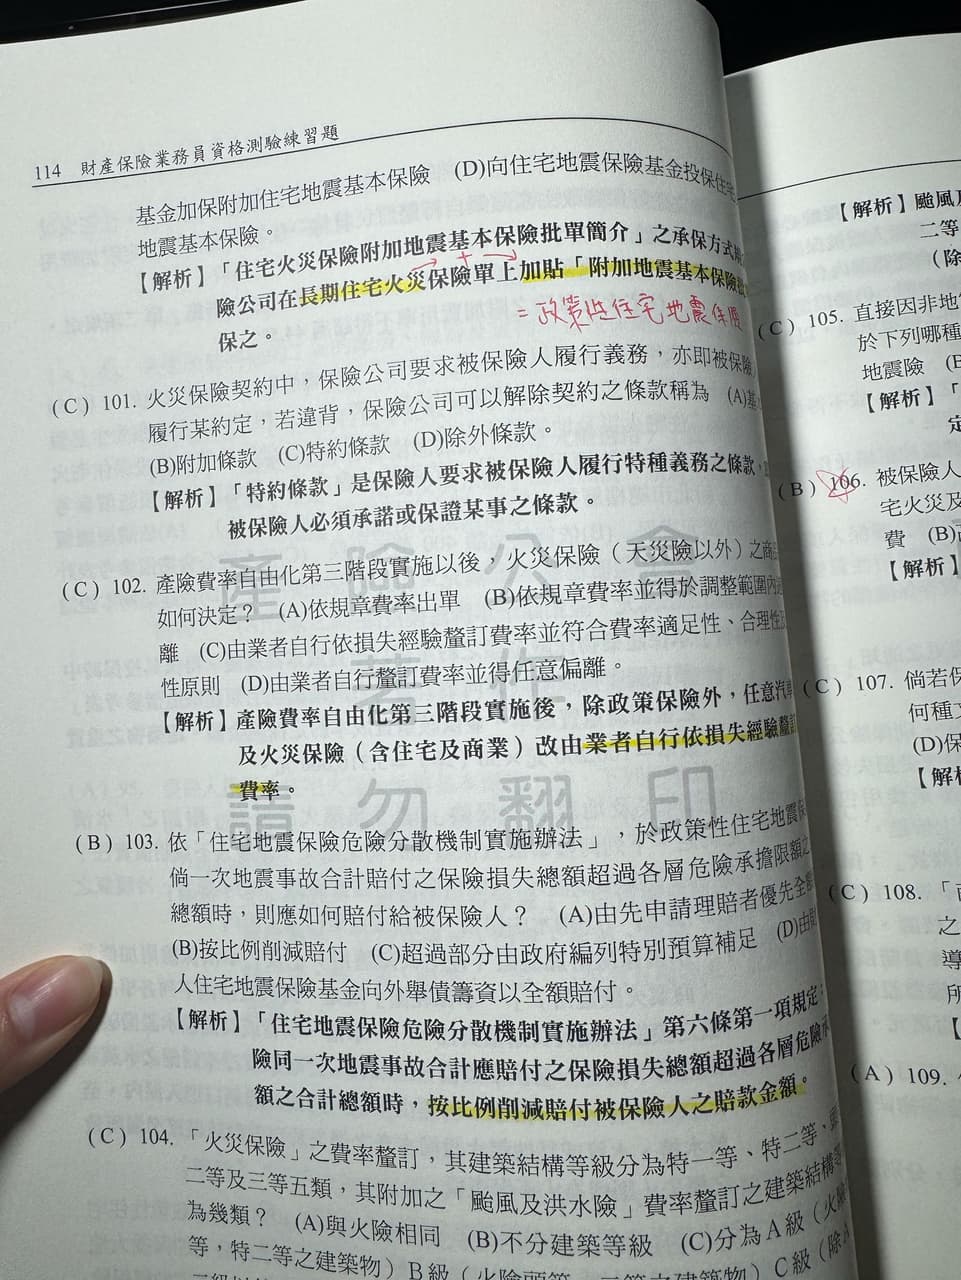 114 財產保險業務員資格測驗練習題
基金加保附加住宅地震基本保險 (D)向住宅地震保險基金投保住宅
地震基本保險。
【解析】「住宅火災保險附加地震基本保險批單簡介」之承保方式
險公司在長期住宅火災保險單上加貼「附加地震基本保險
保之。
+
=政策性住宅地震保險
(C) 101. 火災保險契約中，保險公司要求被保險人履行義務，亦即被保險
履行某約定，若違背，保險公司可以解除契約之條款稱為 (A)
(B)附加條款 (C)特約條款 (D)除外條款。
【解析】「特約條款」是保險人要求被保險人履行特種義務之條款，
被保險人必須承諾或保證某事之條款。
(C) 102. 產險費率自由化第三階段實施以後，火災保險（天災險以外）之商
如何決定？ (A)依規章費率出單 (B)依規章費率並得於調整範圍內
離 (C)由業者自行依損失經驗釐訂費率並符合費率適足性、合理性
性原則 (D)由業者自行釐訂費率並得任意偏離。
【解析】產險費率自由化第三階段實施後，除政策保險外，任意汽車
及火災保險（含住宅及商業）改由業者自行依損失經驗釐訂
費率。
(B) 103. 依「住宅地震保險危險分散機制實施辦法」，於政策性住宅地震保
倘一次地震事故合計賠付之保險損失總額超過各層危險承擔限額之
總額時，則應如何賠付給被保險人？ (A)由先申請理賠者優先全
(B)按比例削減賠付 (C)超過部分由政府編列特別預算補足 (D)由財
人住宅地震保險基金向外舉債籌資以全額賠付。
【解析】「住宅地震保險危險分散機制實施辦法」第六條第一項規定：
險同一次地震事故合計應賠付之保險損失總額超過各層危險承
額之合計總額時，按比例削減賠付被保險人之賠款金額。
(C) 104. 「火災保險」之費率釐訂，其建築結構等級分為特一等、特二等、頭
二等及三等五類，其附加之「颱風及洪水險」費率釐訂之建築結構等
為幾類？ (A)與火險相同 (B)不分建築等級 (C)分為A級（火險
等，特二等之建築物）B級（火險頭等、二等之建築物）C級（除A
產險公會
著作
請勿翻印
【解析】颱風及
二等
（除
(C) 105. 直接因非地
於下列哪種
地震險 (B
【解析】「
定
(B) 106. 被保險人
宅火災及
費 (B)
【解析】
(C) 107. 倘若保
何種文
(D)保
【解析
(C) 108. 「
之
導
所
【
(A) 109.